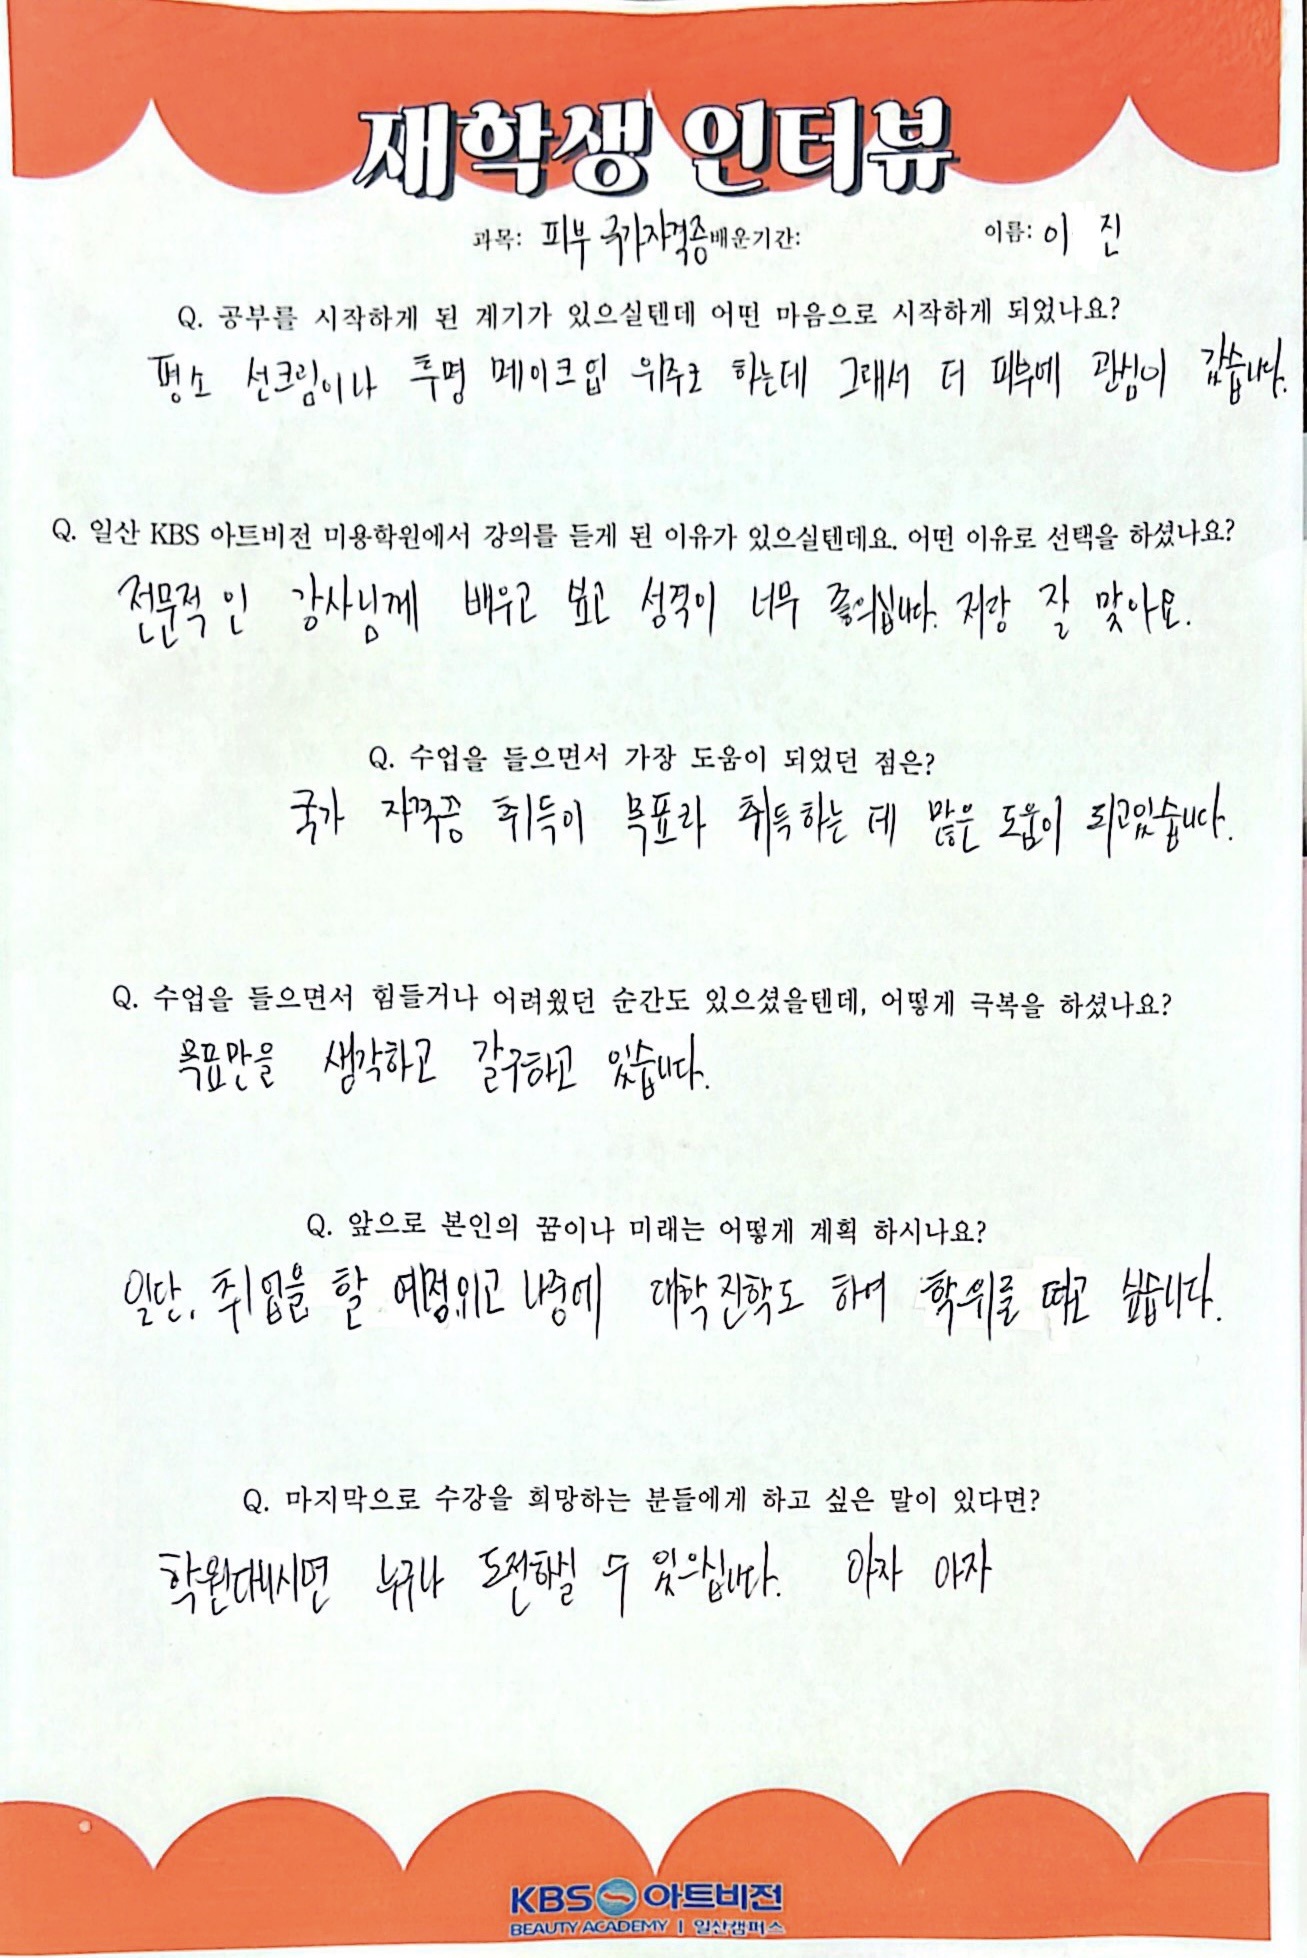 재학생 인터뷰
과목: 피부 국가자격증 배운기간: 이름: 이 진
Q. 공부를 시작하게 된 계기가 있으실텐데 어떤 마음으로 시작하게 되었나요?
평소 선크림이나 투명 메이크업 위주로 하는데 그래서 더 피부에 관심이 갔습니다.
Q. 일산 KBS 아트비전 미용학원에서 강의를 듣게 된 이유가 있으실텐데요. 어떤 이유로 선택을 하셨나요?
전문적인 강사님께 배우고 성격이 너무 좋으십니다. 저랑 잘 맞아요.
Q. 수업을 들으면서 가장 도움이 되었던 점은?
국가 자격증 취득이 목표라 취득하는 데 많은 도움이 되고있습니다.
Q. 수업을 들으면서 힘들거나 어려웠던 순간도 있으셨을텐데, 어떻게 극복을 하셨나요?
목표만을 생각하고 갈구하고 있습니다.
Q. 앞으로 본인의 꿈이나 미래는 어떻게 계획 하시나요?
일단, 취업을 할 예정이고 나중에 대학진학도 하여 학위를 따고 싶습니다.
Q. 마지막으로 수강을 희망하는 분들에게 하고 싶은 말이 있다면?
학원다니시면 누구나 도전하실 수 있으십니다. 아자 아자
KBS 아트비전
BEAUTY ACADEMY | 일산캠퍼스